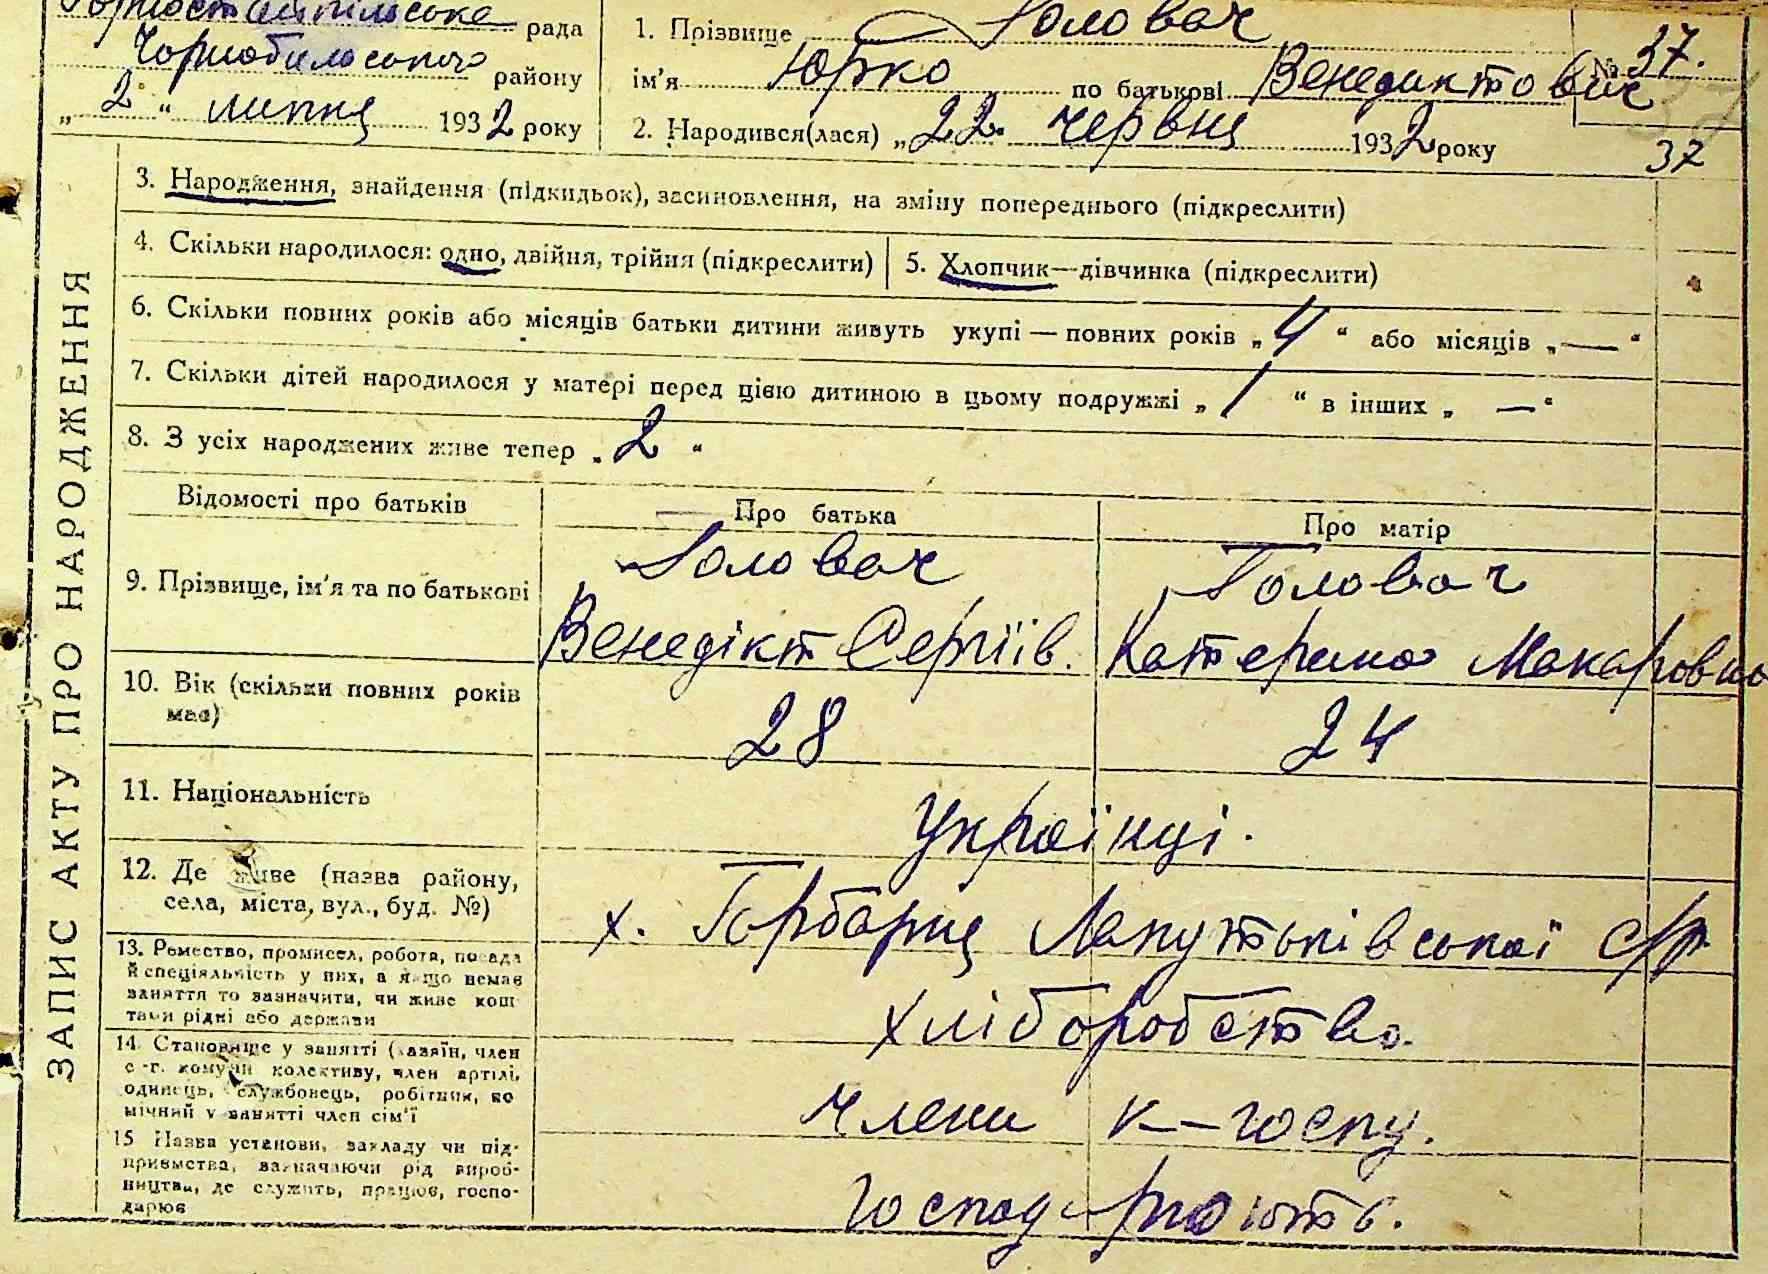 Горностайпільська рада
Чорнобильського району
„ 2 “ липня 1932 року
1. Прізвище Головач
ім'я Юрко по батькові Венедиктович
№ 37.
2. Народився(лася) „22. червня 1932 року
37
ЗАПИС АКТУ ПРО НАРОДЖЕННЯ
3. Народження, знайдення (підкидьок), засиновлення, на зміну попереднього (підкреслити)
4. Скільки народилося: одно, двійня, трійня (підкреслити)
5. Хлопчик—дівчинка (підкреслити)
6. Скільки повних років або місяців батьки дитини живуть укупі — повних років „ 4 “ або місяців „—“
7. Скільки дітей народилося у матері перед цією дитиною в цьому подружжі „ 1 “ в інших „ —“
8. З усіх народжених живе тепер „ 2 “
Відомості про батьків
Про батька
Про матір
9. Прізвище, ім'я та по батькові
Головач
Венедікт Сергіїв.
Головач
Катерина Макаровна
10. Вік (скільки повних років
має)
28
24
11. Національність
Українці.
12. Де живе (назва району,
села, міста, вул., буд. №)
х. Горбарця Лапутьківської с/р
13. Ремество, промисел, робота, посада
й спеціяльність у них, а якщо немає
заняття то зазначити, чи живе кош
тами рідні або держави
хліборобство.
14. Становище у занятті (хазяїн, член
с.-г. комуни колективу, член артілі,
одинець, службовець, робітник, по
мічний у занятті член сім'ї
члени к-госпу.
15 Назва установи, закладу чи під-
приємства, зазначаючи рід вироб-
ництва, де служить, працює, госпо-
дарює
господарюють.